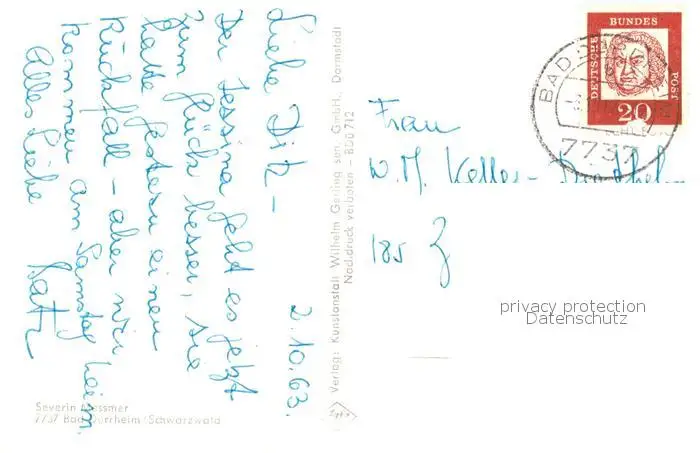 2.10.63.
Liebe Ditz -
Der Jessina geht es jetzt
zum Glück besser, sie
hatte gestern einen
Rückfall - aber wir
kommen am Samstag heim.
Alles Liebe
Severin Messmer
7737 Bad Dürrheim/Schwarzwald
Verlag: Kunstanstalt Wilhelm Gerling sen. GmbH., Darmstadt
Nachdruck verboten - BDü 712
DEUTSCHE
BUNDES
POST
20
BAD
7737
Frau
W.M. Keller-
185 Z
privacy protection
Datenschutz